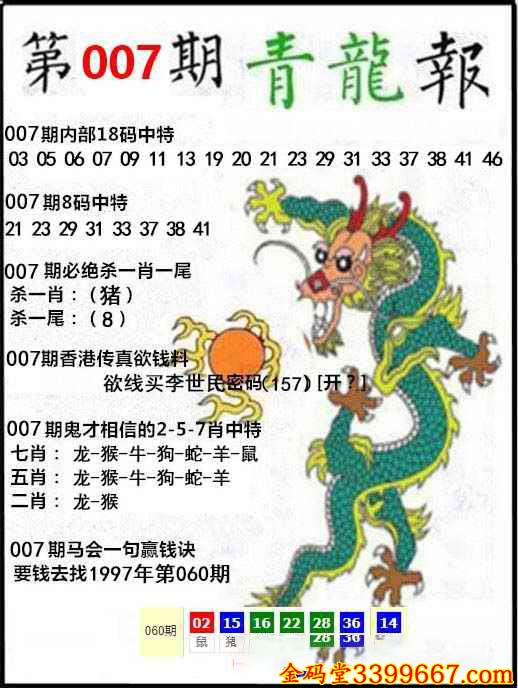 第007期青龍報
007期内部18码中特
03 05 06 07 09 11 13 19 20 21 23 29 31 33 37 38 41 46
007期8码中特
21 23 29 31 33 37 38 41
007期必绝杀一肖一尾
杀一肖：（猪）
杀一尾：（8）
007期香港传真欲钱料
欲线买李世民密码(157) [开？]
007期鬼才相信的2-5-7肖中特
七肖： 龙-猴-牛-狗-蛇-羊-鼠
五肖： 龙-猴-牛-狗-蛇-羊
二肖： 龙-猴
007期马会一句赢钱诀
要钱去找1997年第060期
060期 02 15 16 22 28 36 14
鼠 猪 28 36
金码堂3399667.com